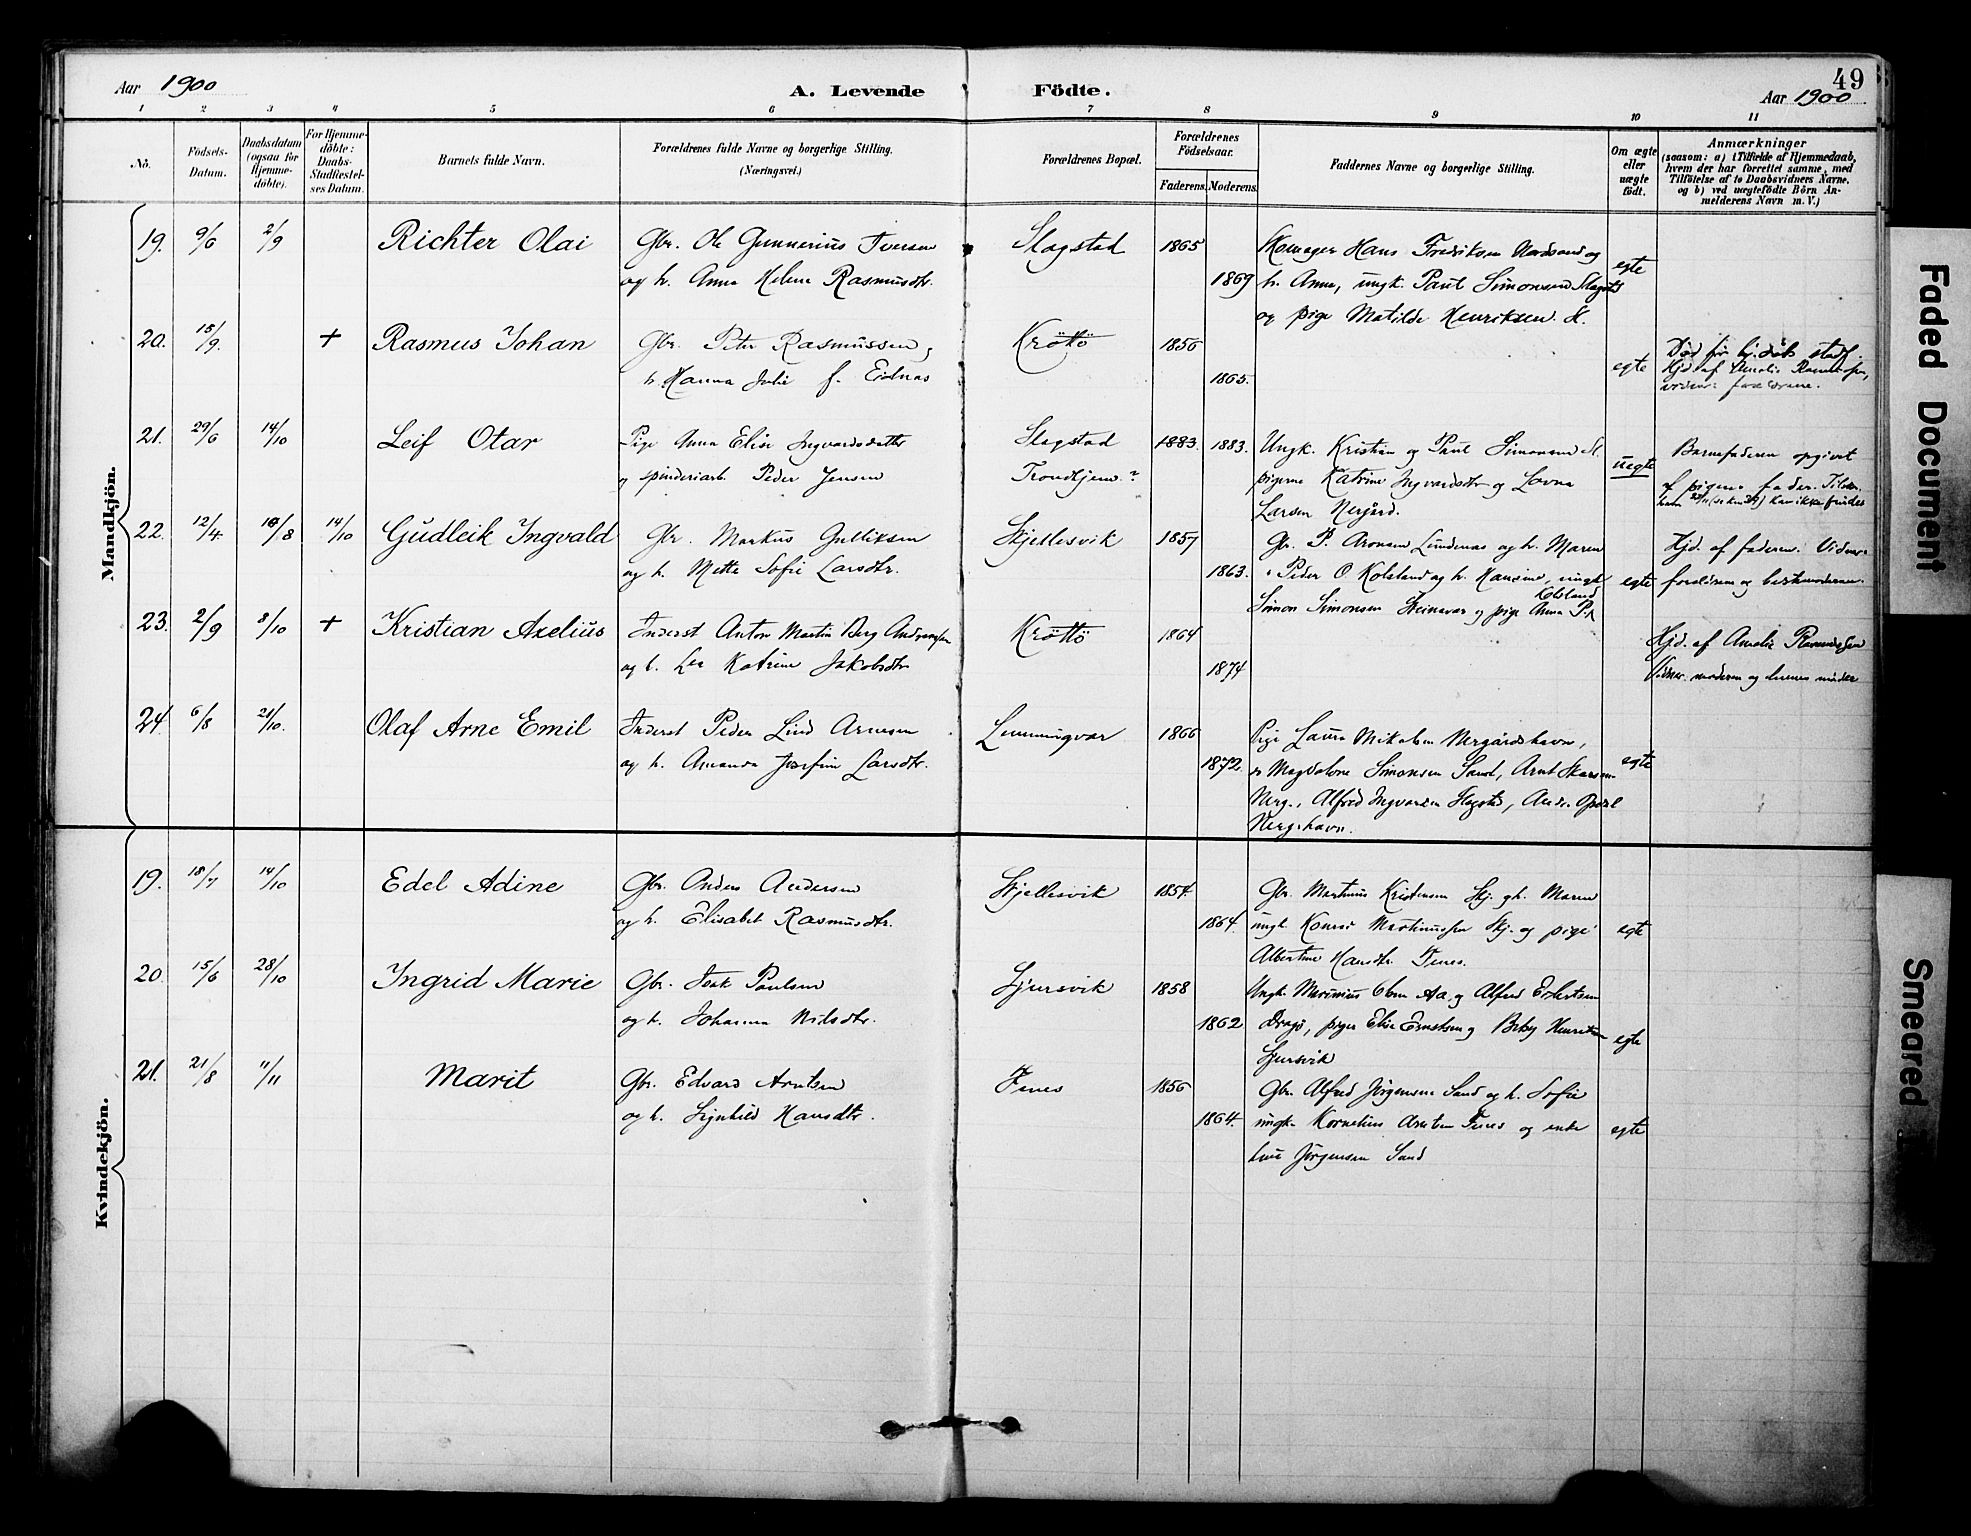 49
Aar 1900
A. Levende Födte.
Aar 1900
1 2 3 4 5 6 7 8 9 10 11
No.
Födsels-Datum.
Daabsdatum (ogsaa for Hjemme-döbte).
For Hjemme-döbte: Daabs-Stadfæstel-ses Datum.
Barnets fulde Navn.
Forældrenes fulde Navne og borgerlige Stilling.
(Næringsvei.)
Forældrenes Bopæl.
Forældrenes Födselsaar.
Faderens. Moderens.
Faddernes Navne og borgerlige Stilling.
Om ægte eller uægte födt.
Anmærkninger
(saasom: a) i Tilfælde af Hjemmedaab,
hvem der har forrettet samme, med
Tilföielse af to Daabsvidners Navne,
og b) ved uægtefödte Börn An-
melderens Navn m. V.)
Mandkjön.
19. 9/6 2/9 Richter Olai Gbr. Ole Gunnerius Iversen Slagstad 1865 Hans Fredriksen Nordsand og
og h. Anna Helene Rasmusdtr. 1869 h. Anna, ungk. Paul Simonsen Slagstd egte
og pige Matilde Henriksen.
20. 15/9. + Rasmus Johan Gbr. Peter Rasmussen Krøttø 1856
h. Hanna Julie f. Eidnes 1865. egte
Død før hj.daab stadf.
Hjd. af Amalie
forældrene.
21. 29/6 14/10 Leif Otar Pige Anna Elise Ingvardsdatter Slagstad 1883. 1883. Ungk. Kristian og Paul Simonsen Sl.
og spinderiarb. Peder Jensen Trondhjem? pigerne Katrine Ingvardsdtr og Lovna uegte
Larsen Nergård.
Barnefaderen opgivet
af pigens fader.
kan ikke findes
22. 12/4 19/8 14/10 Gudleik Ingvald Gbr. Markus Gulliksen Skjellesvik 1857 Gbr. P. Aronsen Lundenes og h. Maren
og h. Mette Sofie Larsdtr. 1863. Peder O. Kolsland og h. Hansine, ungk. egte
Kolsland
Simon Simonsen Steinavær og pige Anna P.
Hjd. af faderen. Vidner:
forældrene og bestemoderen.
23. 2/9 8/10 + Kristian Axelius Inderst Anton Martin Berg Krøttø 1864
og h. Lea Katrine Jakobsdtr 1874
Hjd. af Amalie Rasmussen
Vidner moderen og hendes moder
24. 6/8 21/10. Olaf Arne Emil Inderst Peder Lind Arnesen Lemmingvær 1866 Pige Laura Mikalsen Nergårdshavn,
og h. Amanda Josefine Larsdtr. 1872. Magdalone Simonsen Sand, Arnt egte
Nerg., Alfred Ingvardsen Slagstd,
Nergshavn.
Kvindekjön.
19. 18/7 14/10 Edel Adine Gbr. Anders Andersen Skjellesvik 1854. Gbr. Martinus Kristensen Skj. og h. Maren
og h. Elisabet Rasmusdtr. 1864. ungk. Konrad Martinussen Skj. og pige egte
Albertine Hansdtr. Fenes.
20. 15/6 28/10 Ingrid Marie Gbr. Isak Paulsen Gjersvik 1858 Ungk. Marinius Olsen Aa. og Alfred
og h. Johanna Nilsdtr. 1862 Dragø, piger Elise Ernstsen og egte
Gjersvik
21. 21/8 11/11 Marit Gbr. Edvard Arntsen Fenes 1856 Gbr. Alfred Jørgensen Sand og h. Sofie
og h. Signhild Hansdtr. 1864. ungk. Kornelius Arntsen Fenes og enke egte
Jørgensen Sand
Faded Document
Smeared